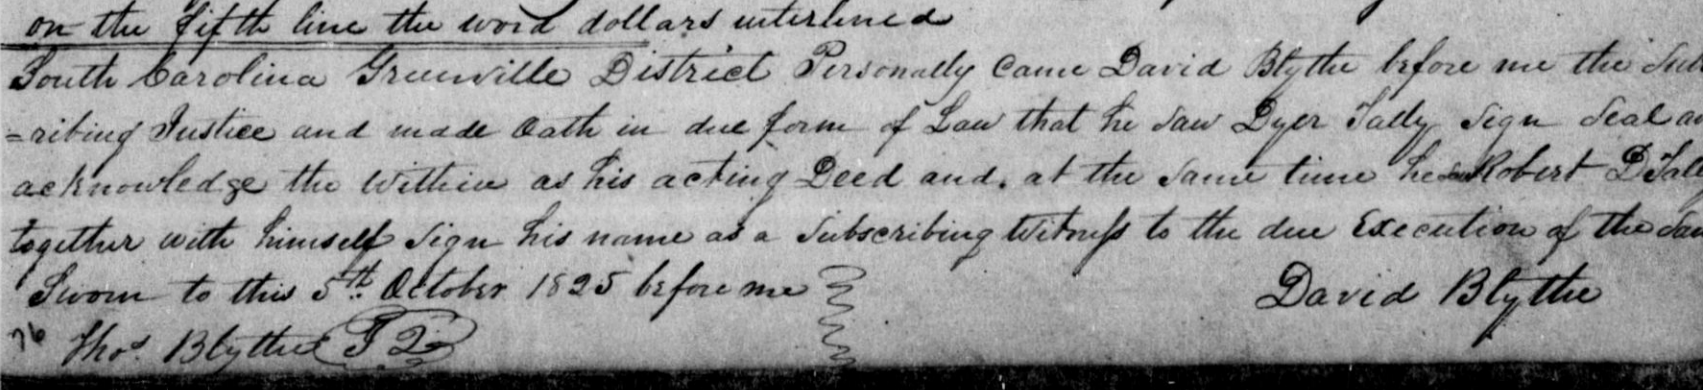 on the fifth line the word dollars interlined
South Carolina Greenville District Personally Came David Blythe before me the Sub
=cribing Justice and made Oath in due form of Law that he Saw Dyer Tally Sign Seal an
acknowledge the within as his acting Deed and. at the Same time he saw Robert D Tall
together with himself Sign his name as a Subscribing Witness to the due Execution of the Sam
Sworn to this 5th October 1825 before me
David Blythe
76 Thos. Blythe J Q